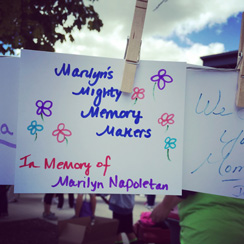 Marilyn's
Mighty
Memory
Makers
In Memory of
Marilyn Napoletan
We
you
Mom